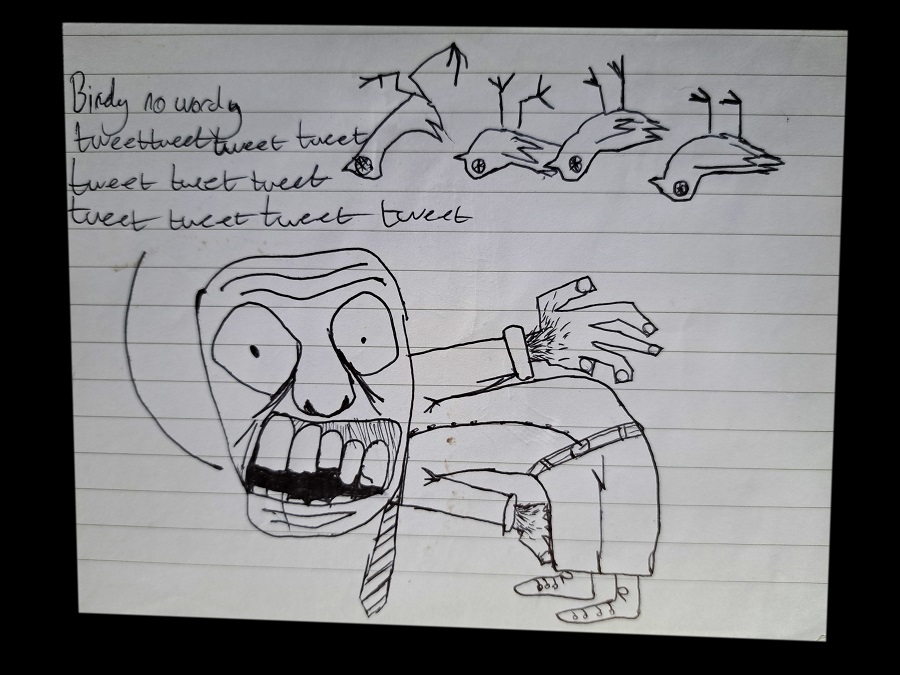 Birdy no wordy
tweettweettweet tweet
tweet tweet tweet
tweet tweet tweet tweet